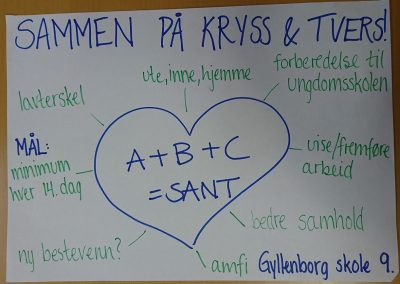 SAMMEN PÅ KRYSS & TVERS!
ute, inne, hjemme
forberedelse til
ungdomsskolen
lavterskel
MÅL:
minimum
hver 14. dag
A + B + C
= SANT
vise/fremføre
arbeid
bedre samhold
ny bestevenn?
amfi
Gyllenborg skole 9.